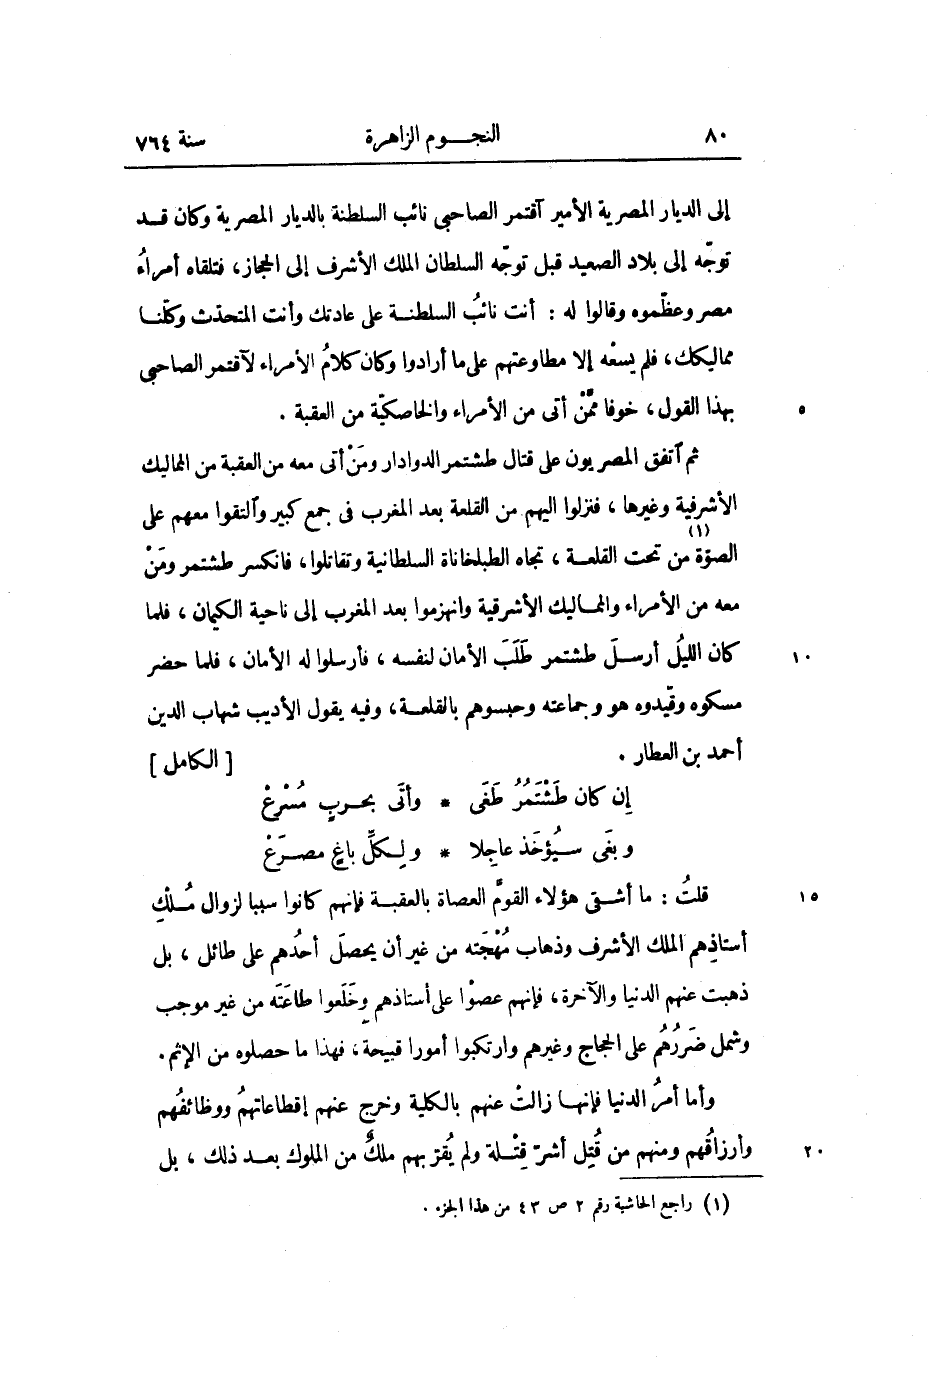 ٨٠ النجــوم الزاهرة سنة ٧٦٤
إلى الديار المصرية الأمير آقتمر الصاحبي نائب السلطنة بالديار المصرية وكان قد
توجّه إلى بلاد الصعيد قبل توجّه السلطان الملك الأشرف إلى الحجاز، فتلقاه أمراءُ
مصر وعظّموه وقالوا له : أنت نائبُ السلطنة على عادتك وأنت المتحدّث وكلّنا
مماليكك، فلم يسعْه إلا مطاوعتهم على ما أرادوا وكان كلامُ الأمراء لآقتمر الصاحبي
بهذا القول، خوفا ممّنْ أتى من الأمراء والخاصكيّة من العقبة . ٥
ثم آتفق المصريون على قتال طشتمر الدوادار ومَنْ أتى معه من العقبة من المماليك
الأشرفية وغيرها ، فنزلوا اليهم من القلعة بعد المغرب فى جمع كبير وآلتقوا معهم على
الصوّة (١) من تحت القلعة ، تجاه الطبلخاناة السلطانية وتقاتلوا، فانكسر طشتمر ومَنْ
معه من الأمراء والمماليك الأشرقية وانهزموا بعد المغرب إلى ناحية الكيمان ، فلما
كان الليلُ أرسلَ طشتمر طَلَبَ الأمان لنفسه ، فأرسلوا له الأمان ، فلما حضر ١٠
مسكوه وقيّدوه هو وجماعته وحبسوهم بالقلعة، وفيه يقول الأديب شهاب الدين
أحمد بن العطار . [ الكامل ]
إن كان طَشْتَمُرُ طَغَى * وأتَى بحربٍ مُسْرِعْ
وبغَى سيُؤخَذ عاجِلا * ولكلِّ باغٍ مصرَعْ
قلتُ : ما أشقى هؤلاء القومَ العصاة بالعقبة فإنهم كانوا سببا لزوال مُلْكِ ١٥
أستاذِهم الملك الأشرف وذهاب مُهْجَته من غير أن يحصلَ أحدُهم على طائل ، بل
ذهبت عنهم الدنيا والآخرة، فإنهم عصوْا على أستاذهم وخَلَعوا طاعَتَه من غير موجب
وشمل ضَرَرُهُم على الحجاج وغيرهم وارتكبوا أمورا قبيحة، فهذا ما حصلوه من الإثم.
وأما أمرُ الدنيا فإنها زالتْ عنهم بالكلية وخرج عنهم إقطاعاتهمُ ووظائفُهم
وأرزاقُهم ومنهم من قُتِل أشرّ قِتْلة ولم يُقرّبهم ملكٌ من الملوك بعد ذلك ، بل ٢٠
(١) راجع الحاشية رقم ٢ ص ٤٣ من هذا الجزء .